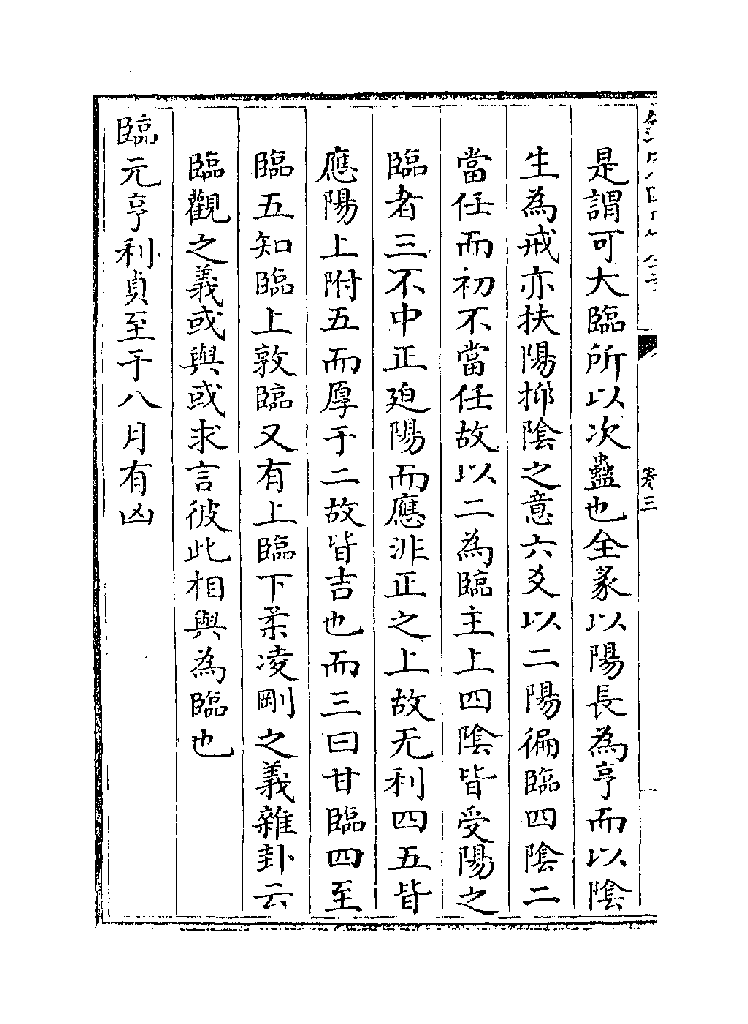 是謂可大臨所以次蠱也全彖以陽長為亨而以陰
生為戒亦扶陽抑陰之意六爻以二陽徧臨四陰二
當任而初不當任故以二為臨主上四陰皆受陽之
臨者三不中正廹陽而應非正之上故无利四五皆
應陽上附五而厚于二故皆吉也而三曰甘臨四至
臨五知臨上敦臨又有上臨下柔凌剛之義雜卦云
臨觀之義或與或求言彼此相與為臨也
臨元亨利貞至于八月有凶
卷三